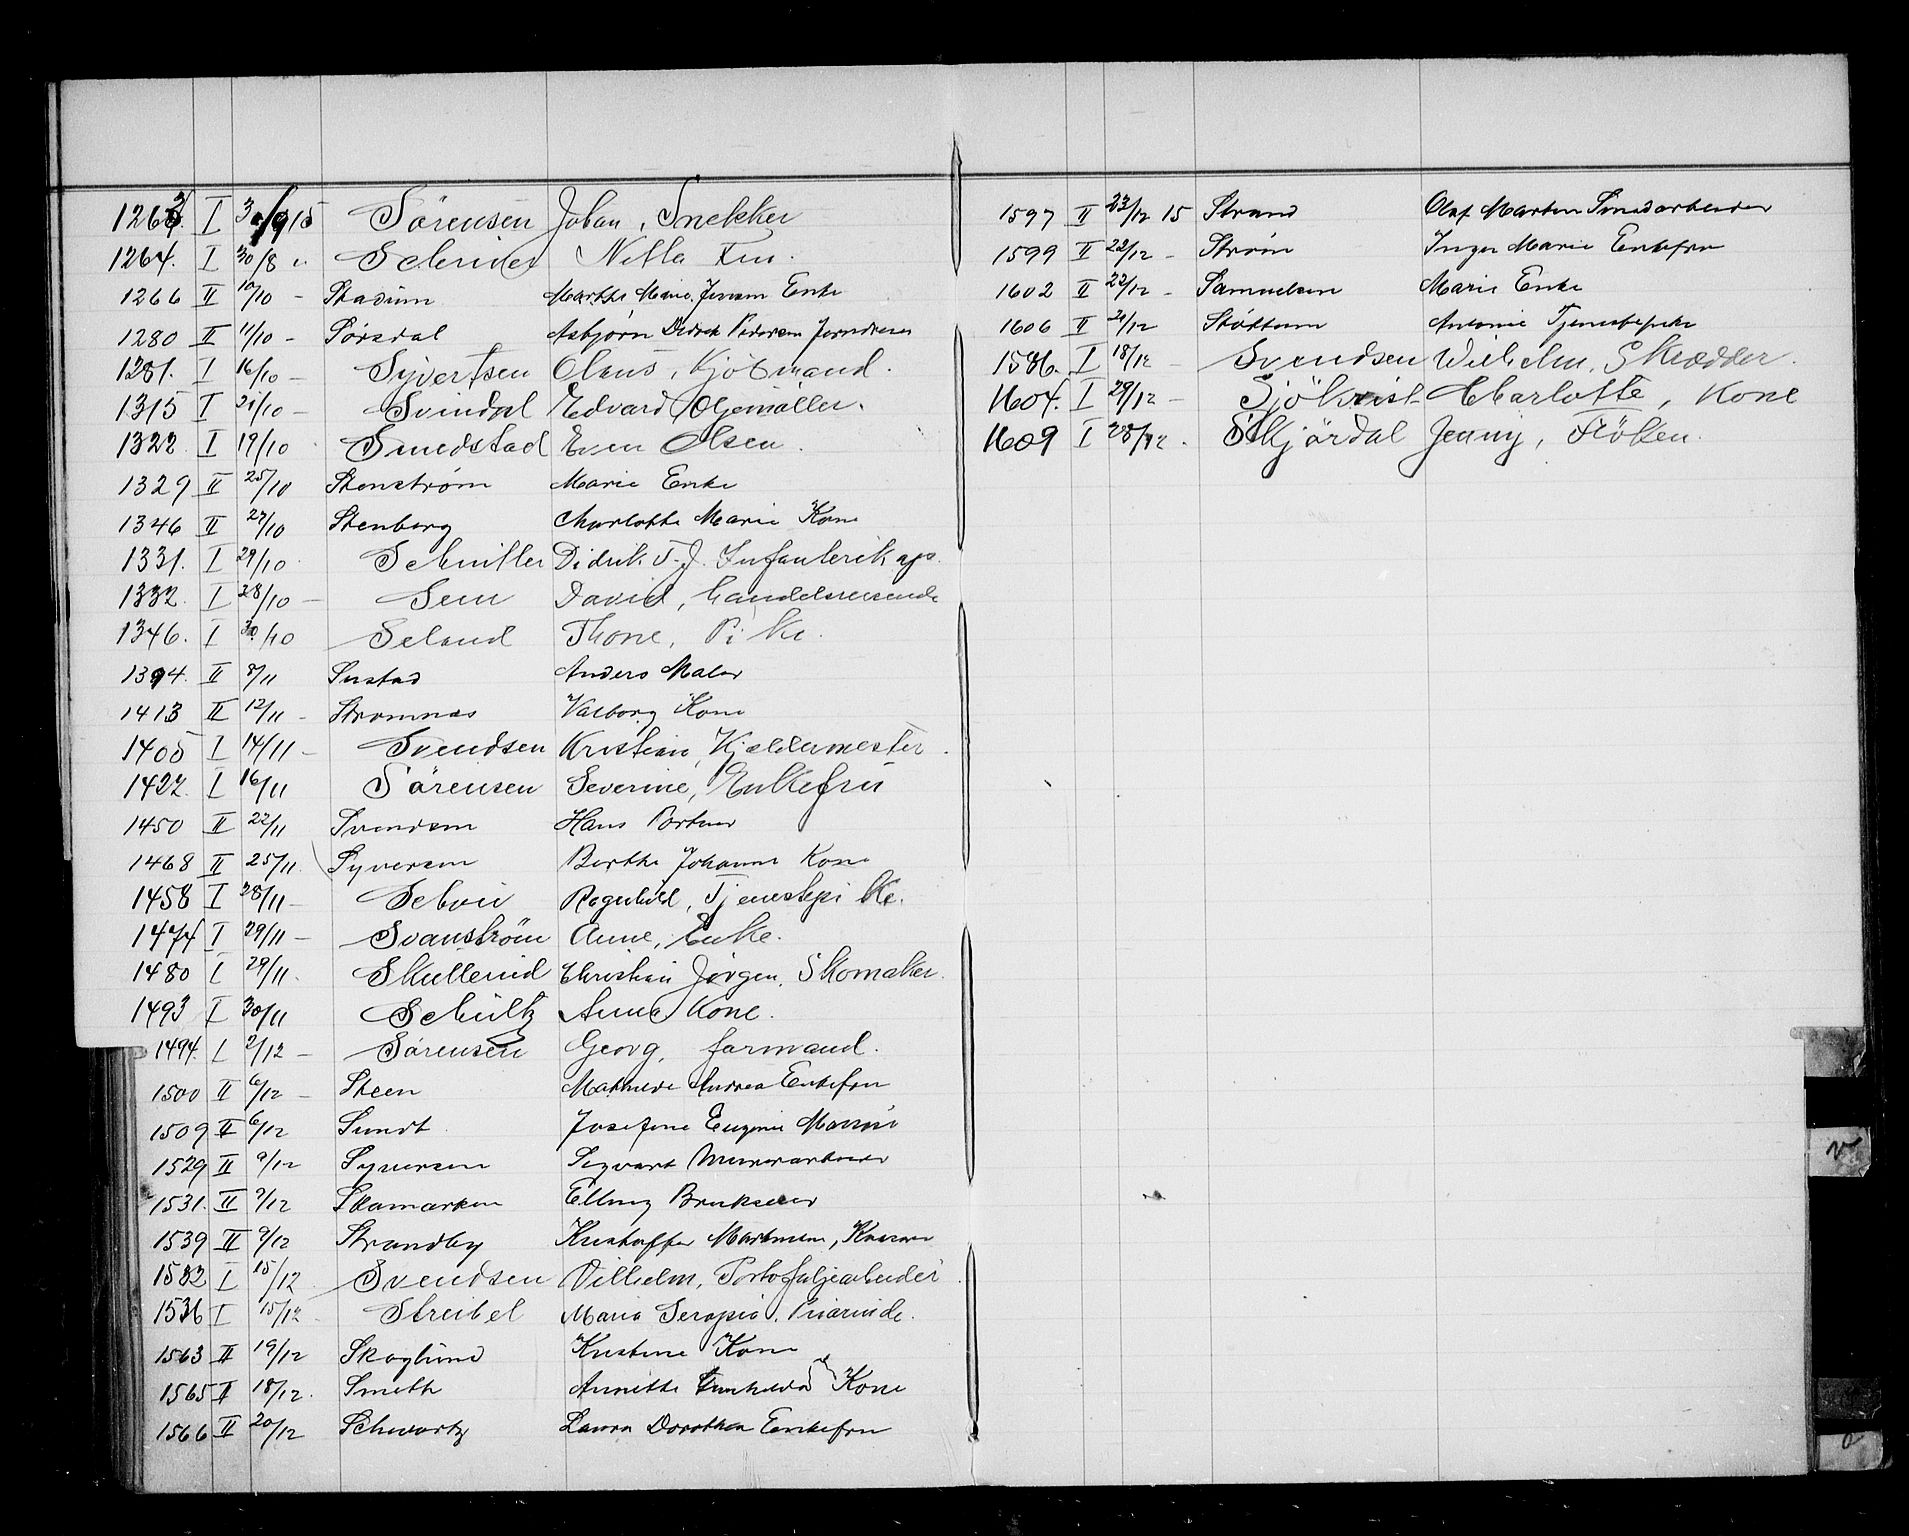 1263. I 30/9 15 Sörensen Johan, Snekker
1264. I 30/8 " Schrider Nilla Fru.
1266 II 10/10 - Stadum Marthe Marie Jensen Enke
1280 II 11/10 - Sørsdal Asbjørn Didrik Pedersen
1281. I 16/10 - Syvertsen Olaus, Kjöbmand.
1315 I 21/10 - Svindal Edvard Oljemöller.
1322 I 19/10 Smedstad Even Olsen.
1329 II 25/10 Stenstrøm Marie Enke
1346 II 27/10 Stenberg Charlotte Marie Kone
1331. I 29/10 Schnitler Didrik T. J. Infanterikap.
1332. I 28/10 - Sem David, handelsreisende
1346. I 30/10 Seland Thone, Pike.
1394. II 8/11 Sustad Anders Maler
1413 II 12/11 - Stromnes Valborg Kone
1405 I 14/11 - Svendsen Kristian, Kjeldermester.
1422. I 16/11 Sörensen Severine, Enkefru
1450 II 22/11 Svendsen Hans Portner
1468 II 25/11. Syversen Berthe Johanne Kone
1458 I 28/11 - Ragnhild, Tjenestepike.
1474 I 29/11 - Svanström Anne, Enke.
1480 I 29/11. Skullerud Christian Jörgen, Skomaker.
1493 I 30/11 Schultz Anna Kone.
1494. I 2/12 - Sörensen Georg, farmand.
1500 II 6/12 - Steen Mathilde Andrea Enkefru
1509 II 6/12 Sundt Josefine Eugenie
1529 II 9/12 Syversen Sigvart Murerarbeider
1531. II 9/12 Skamarken Elling Brukseier
1539 II 9/12 Strandby Kristoffer Martinsen,
1532 I 15/12 Svendsen Vilhelm, Portofuljearbeider.
1536 I 15/12. Streibel Maria Serapia. Priorinde.
1563 II 19/12 Skoglund Kristine Kone
1565 II 18/12. Smith Annette Kone
1566 II 20/12 Schwartz Laura Dorothea Enkefru
1597 II 23/12 15 Strand Olaf Marten
1599 II 22/12 - Strøm Inger Marie Enkefru
1602 II 22/12 - Samuelsen Marie Enke
1606 II 21/12 Antonie Tjenestepike
1586. I 18/12 - Svendsen Wilhelm, Skrædder.
1604. I 29/12 - Sjökvist Charlotte, Kone
1609 I 28/12. Skjördal Jenny, Fröken.
v